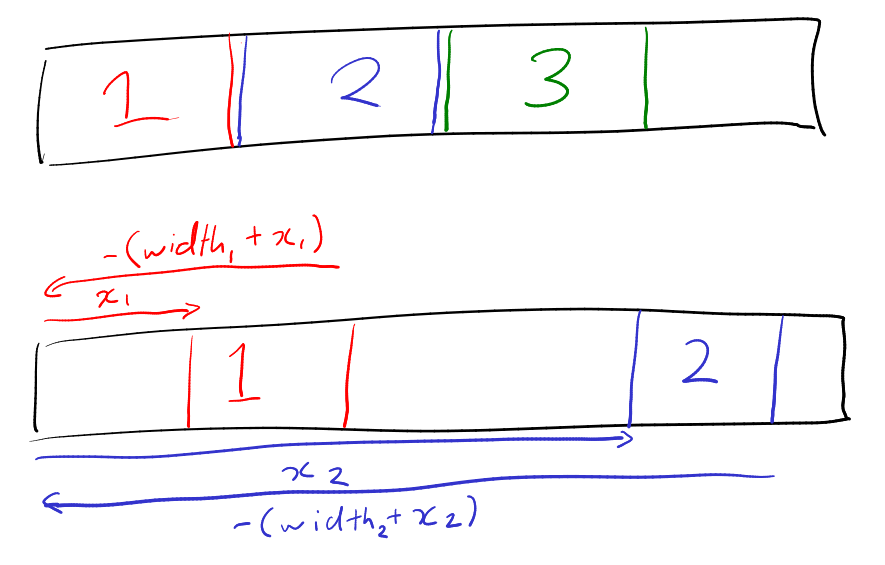 1 2 3
-(width₁ + x₁)
x₁
1 2
x₂
-(width₂+x₂)